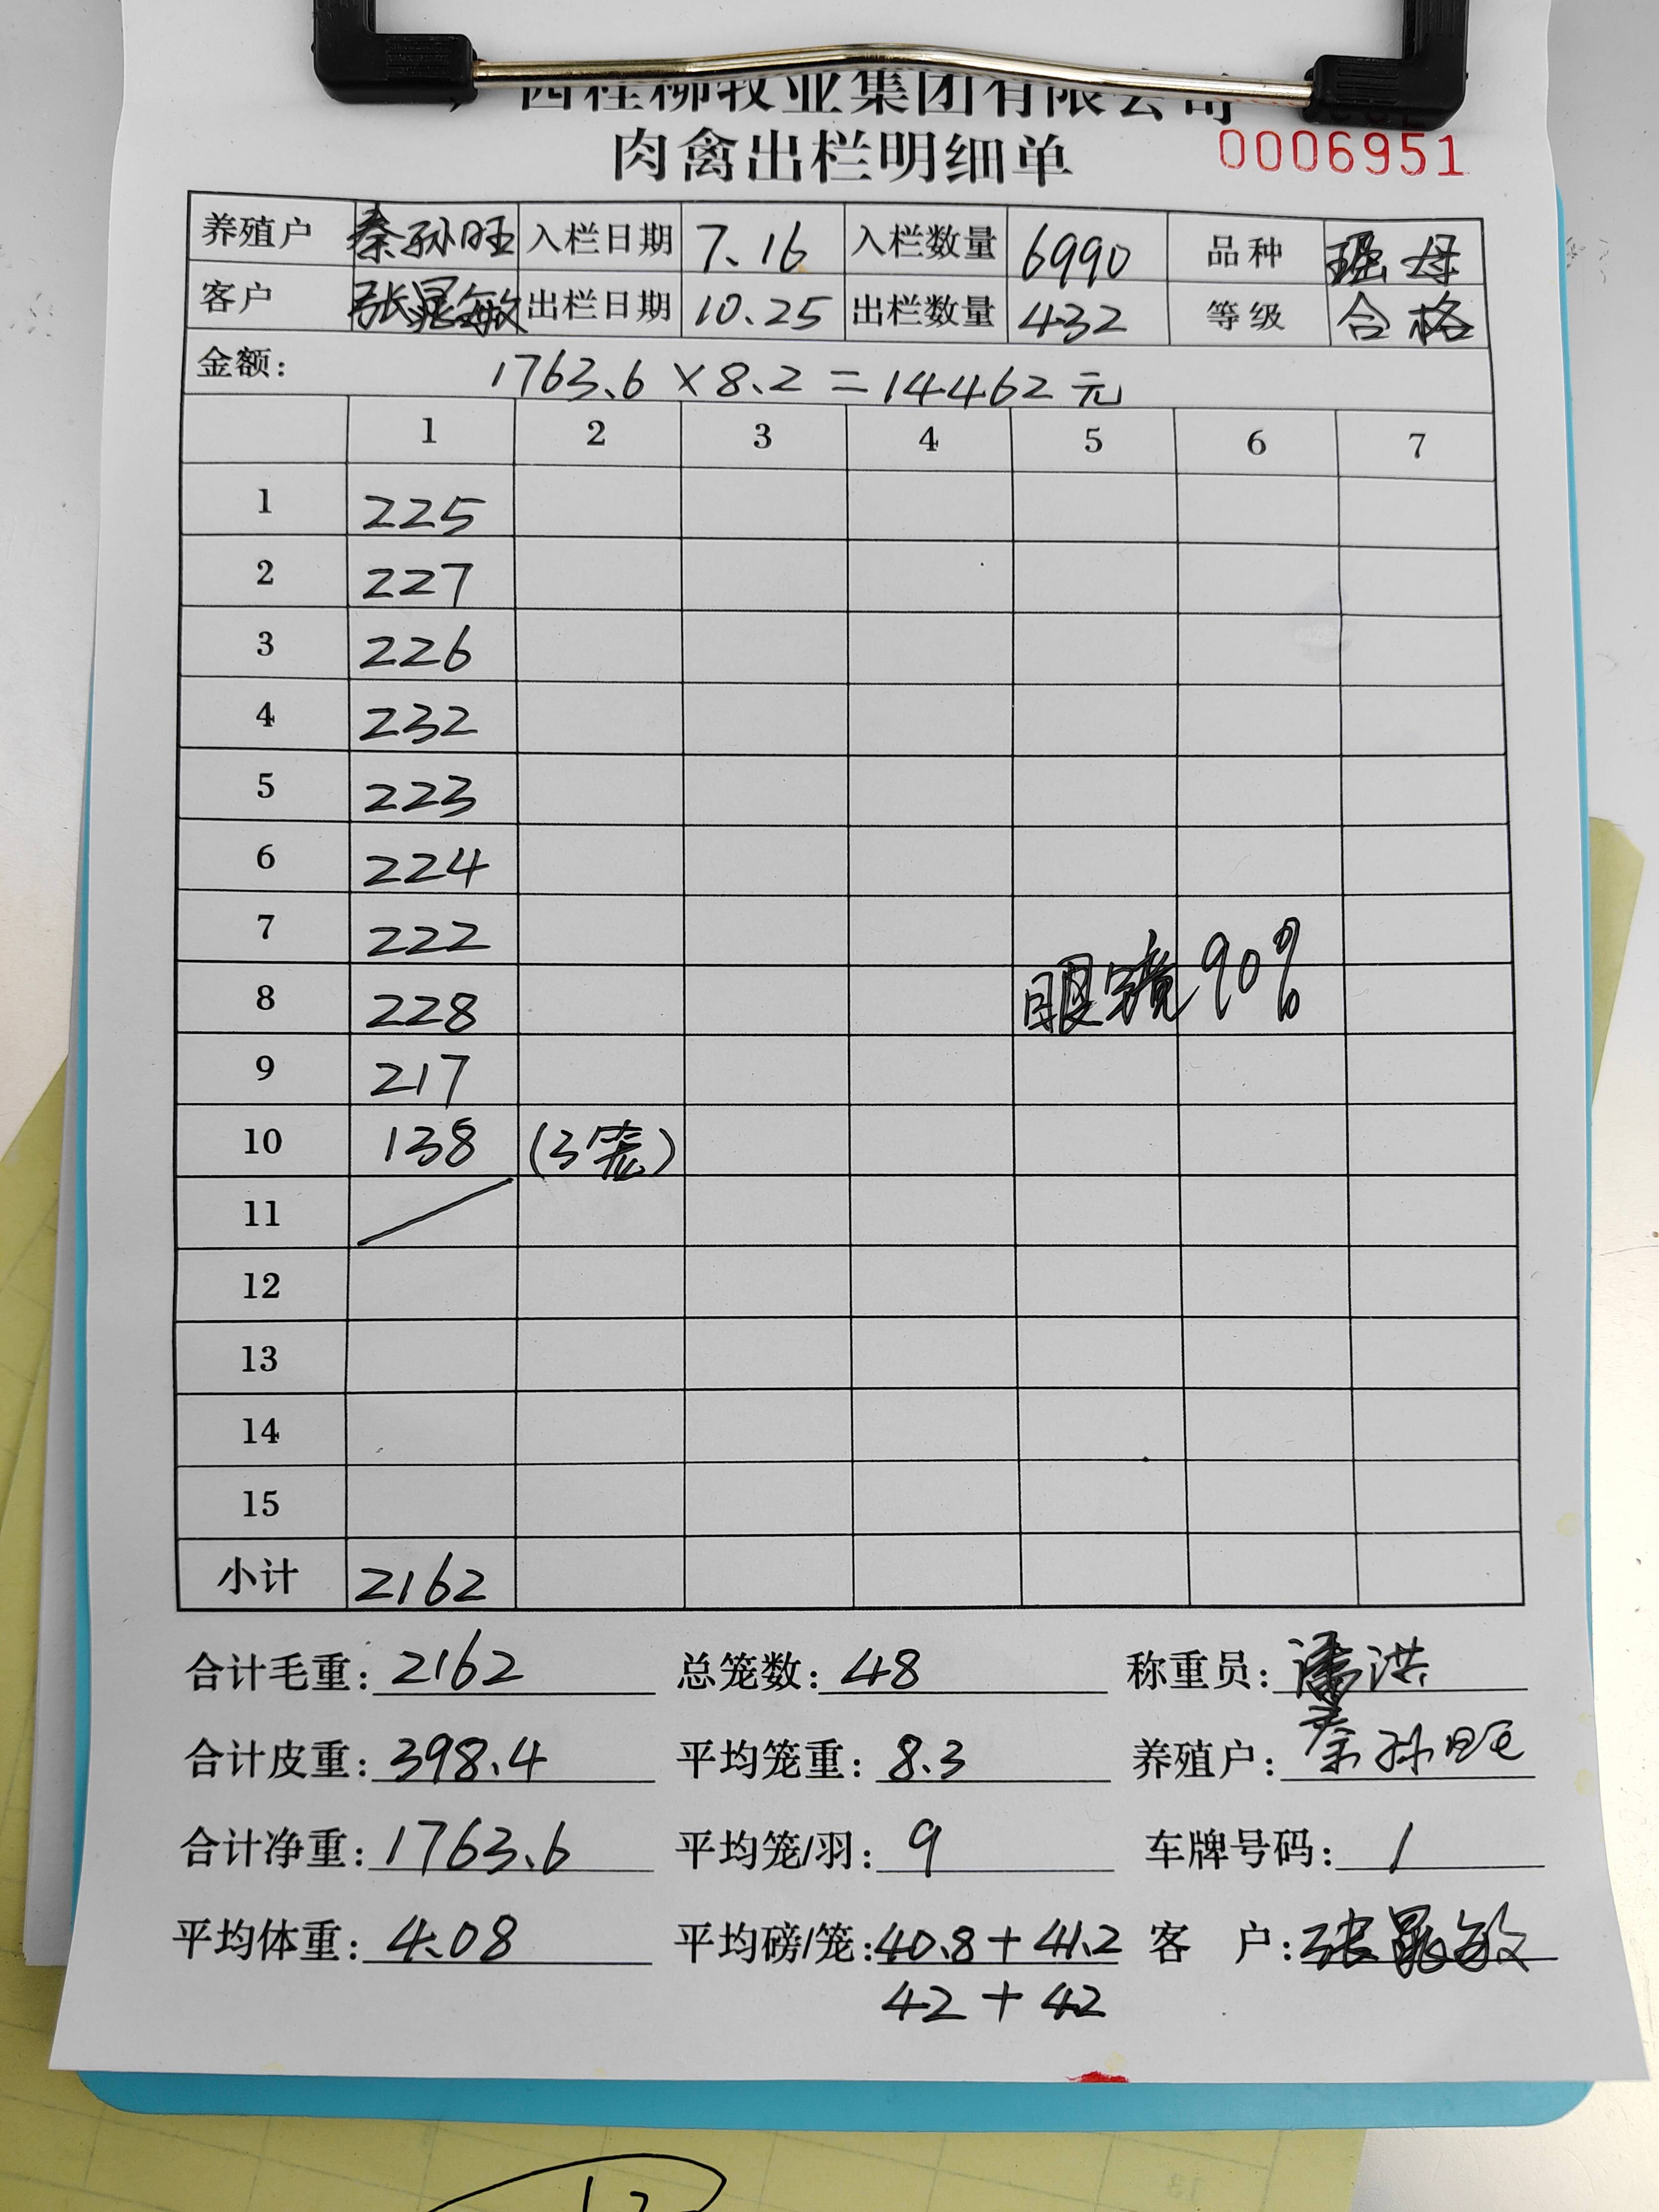 西桂柳牧业集团有限公司
肉禽出栏明细单
0006951
养殖户 秦孙旺 入栏日期 7.16 入栏数量 6990 品种 瑶母
客户 出栏日期 10.25 出栏数量 432 等级 合格
金额: 1763.6×8.2=14462元
1 2 3 4 5 6 7
1 225
2 227
3 226
4 232
5 223
6 224
7 222
眼镜90%
8 228
9 217
10 138 (3笼)
11
12
13
14
15
小计 2162
合计毛重: 2162 总笼数: 48 称重员: 潘洪
合计皮重: 398.4 平均笼重: 8.3 养殖户: 秦孙旺
合计净重: 1763.6 平均笼/羽: 9 车牌号码: /
平均体重: 4.08 平均磅/笼: 40.8+41.2 客户:
42+42
13